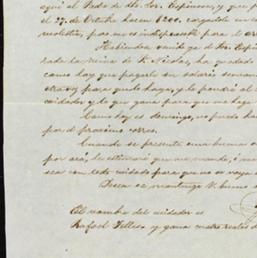 aqui al Pedro de Dho. Sor. Espinosa, y que p
el 27 de Octubre hacen $200. cargados en c
molestia, pues no es indispensable para el ar
Habiendose
rada la mina de S. Nicolas, ha quedado
camos hay que pagarle un salario seman
otra vez para que lo haga, y lo pondré al
cuidador y lo que gana para que no haga
Como hoy es domingo, no puedo ha
por el proximo correo.
Cuando se presente una buena o
por acá, le estimaré que me mande, ó m
sea con todo cuidado para que no se vaya
Deseo se mantenga V. bueno
El nombre del cuidador es
Rafael Tellez y gana cuatro reales d